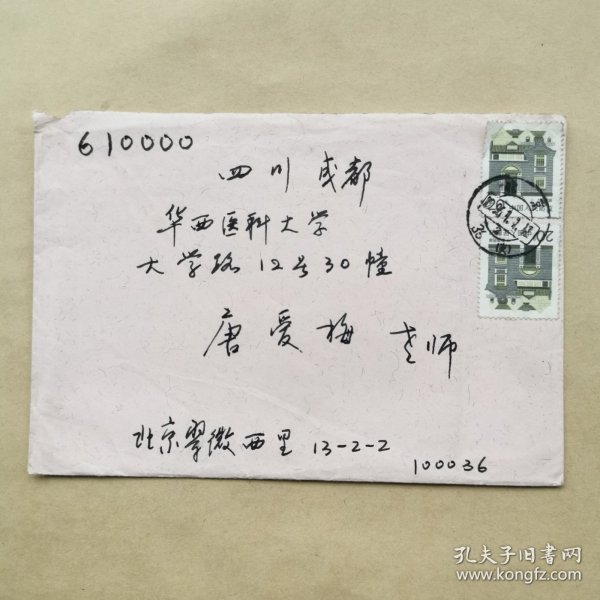 610000
四川成都
华西医科大学
大学路12号30幢
唐爱梅 老师
北京翠微西里 13-2-2
100036
孔夫子旧书网
www.kongfz.com